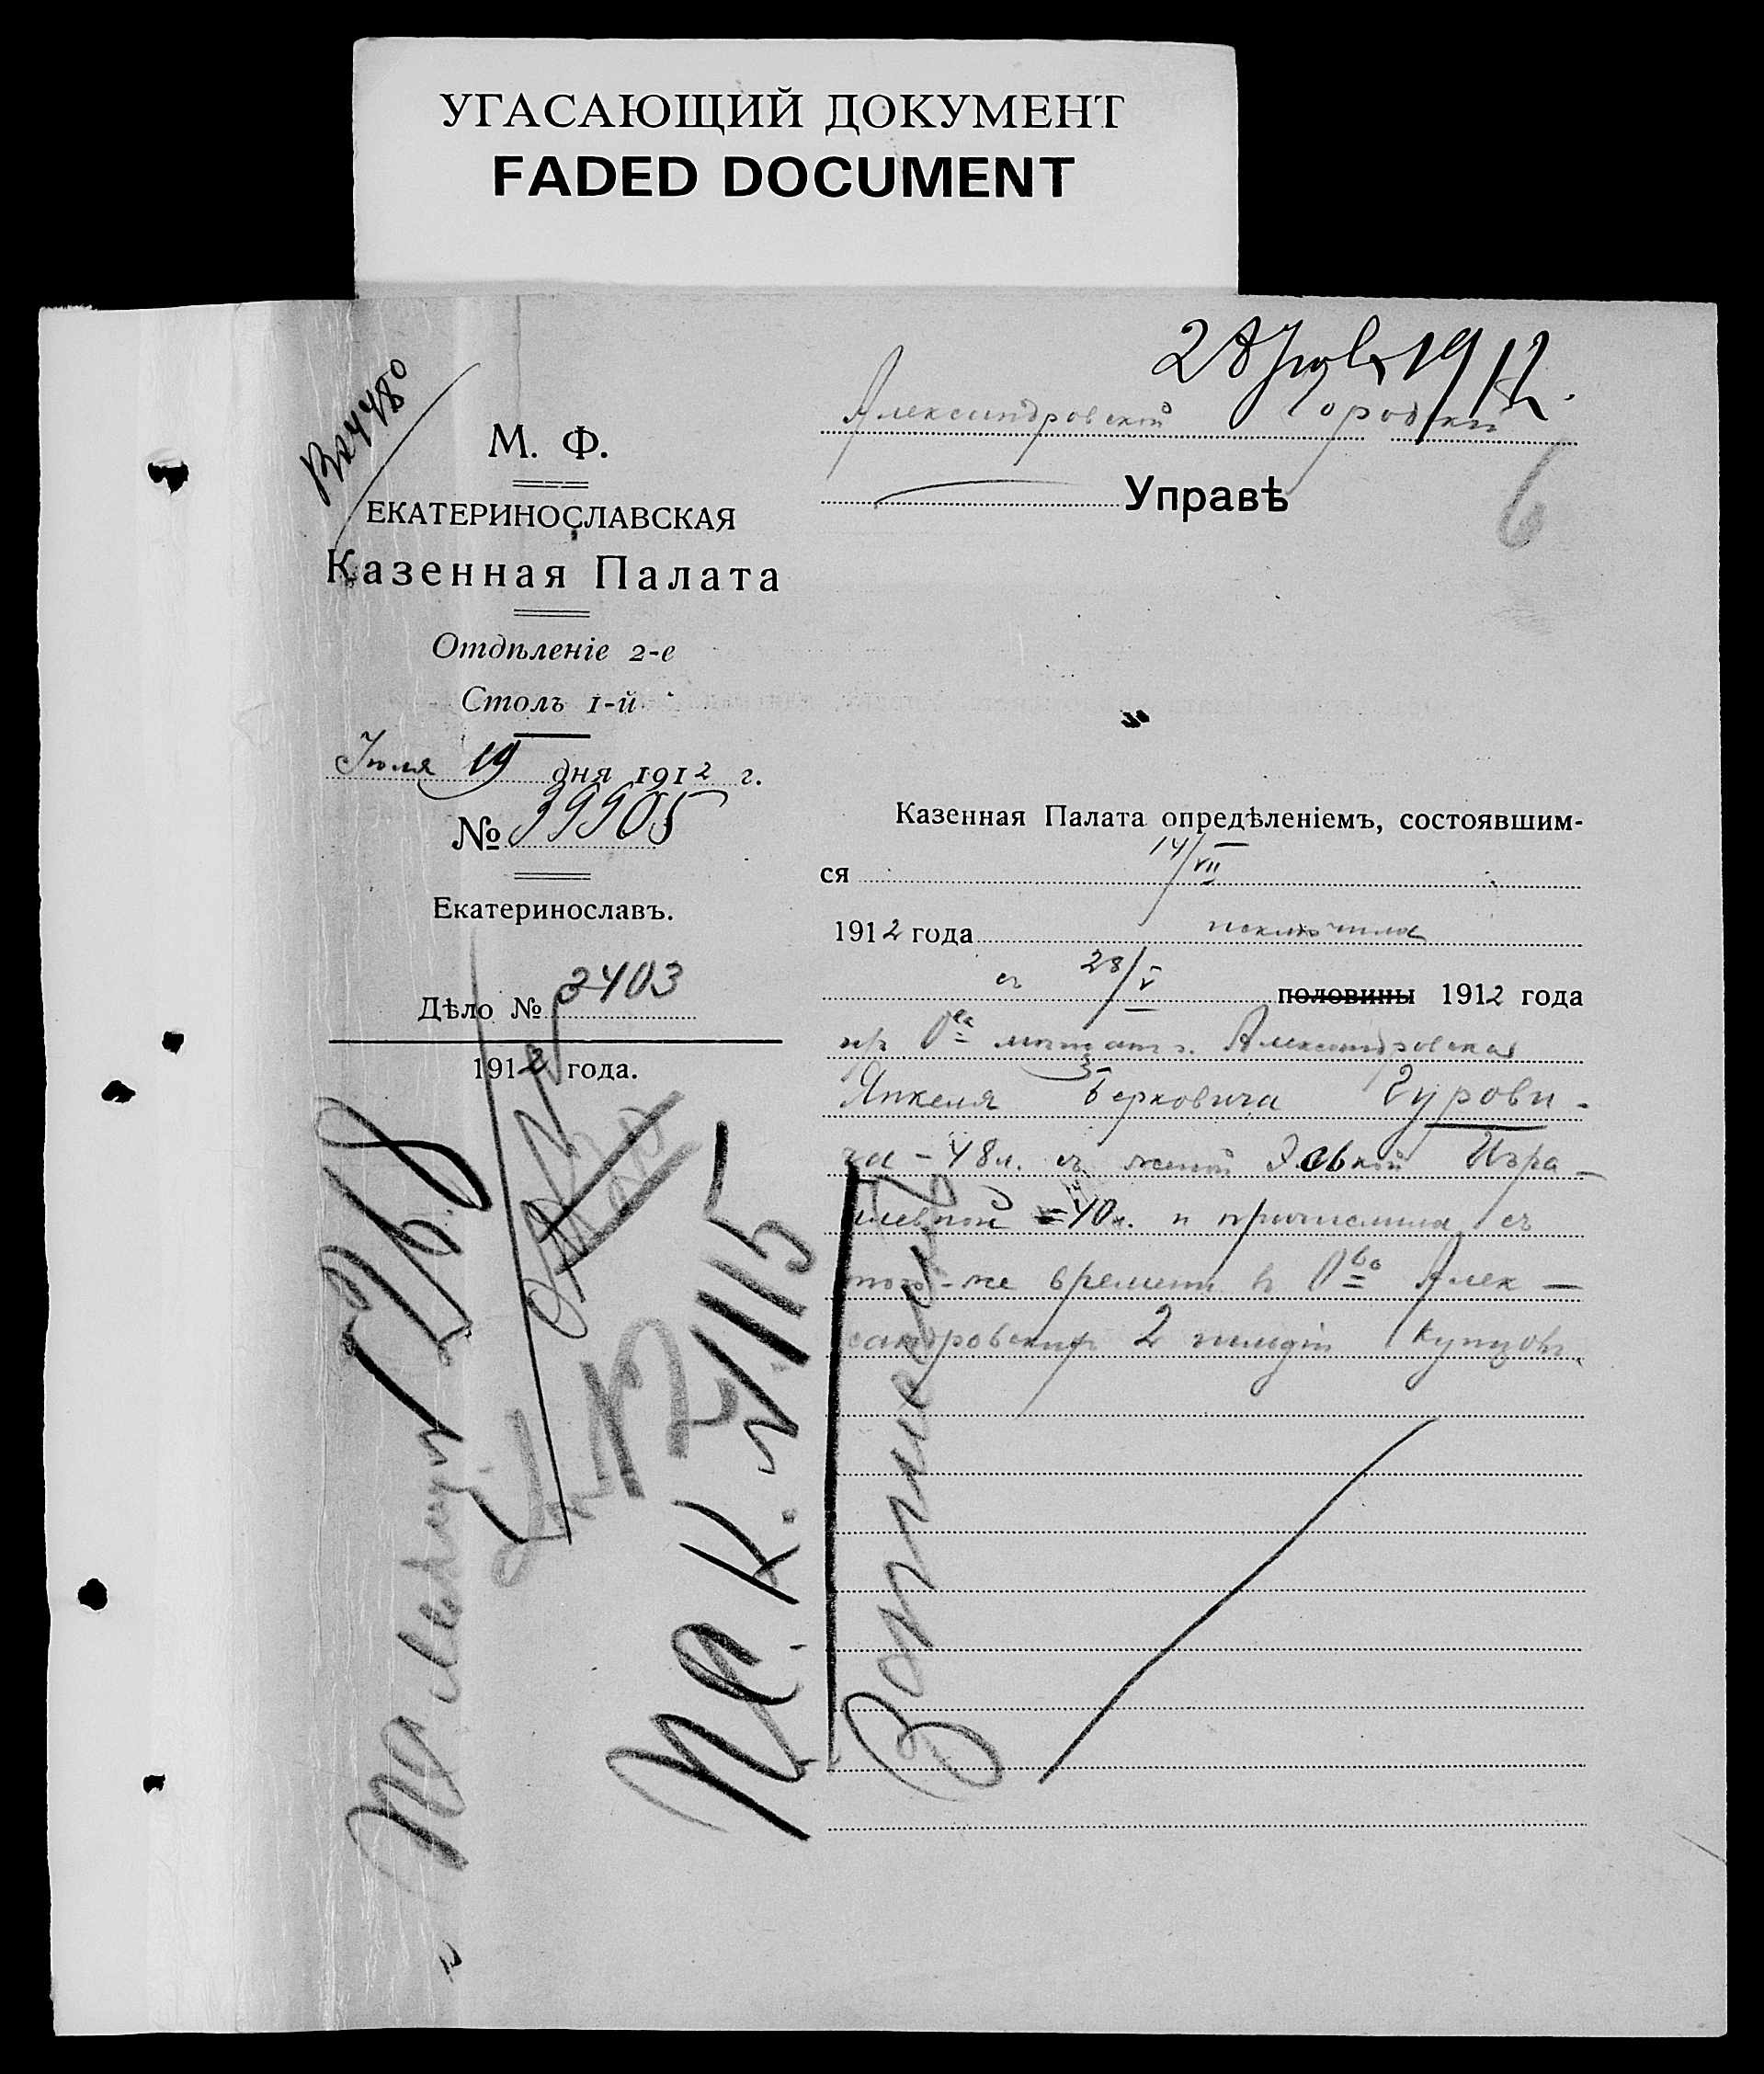 УГАСАЮЩИЙ ДОКУМЕНТ
FADED DOCUMENT
28 Іюля 1912.
Вх 4480
М. Ф.
ЕКАТЕРИНОСЛАВСКАЯ
Казенная Палата
Отдѣленіе 2-е
Столъ 1-й
Іюля 19 дня 1912 г.
№ 39905
Екатеринославъ.
Дѣло № 2403
1912 года.
Александровской Городской
Управѣ
6
Казенная Палата опредѣленіемъ, состоявшим-
ся 14/VII
1912 года исключила
съ 28/V половины 1912 года
изъ О-ва мѣщанъ г. Александровска
Янкеля Берковича Гурови-
ча - 48 л. съ женой Израи-
левной 40 л. и причислила съ
того-же времени въ О-во Алек-
сандровскихъ 2 гильдіи купцовъ.
М. К. № 115